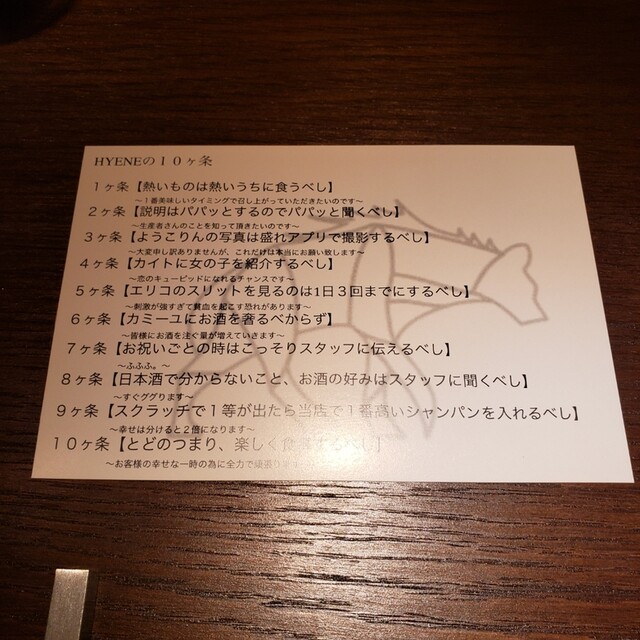 HYENEの10ヶ条
1ヶ条【熱いものは熱いうちに食うべし】
〜1番美味しいタイミングで召し上がっていただきたいのです〜
2ヶ条【説明はパパッとするのでパパッと聞くべし】
〜生産者さんのことを知って頂きたいのです〜
3ヶ条【ようこりんの写真は盛れアプリで撮影するべし】
〜大変申し訳ありませんが、これだけは本当にお願い致します〜
4ヶ条【カイトに女の子を紹介するべし】
〜恋のキューピッドになれるチャンスです〜
5ヶ条【エリコのスリットを見るのは1日3回までにするべし】
〜刺激が強すぎて貧血を起こす恐れがあります〜
6ヶ条【カミーユにお酒を奢るべからず】
〜皆様にお酒を注ぐ量が増えていきます〜
7ヶ条【お祝いごとの時はこっそりスタッフに伝えるべし】
〜ふふふ。〜
8ヶ条【日本酒で分からないこと、お酒の好みはスタッフに聞くべし】
〜すぐググります〜
9ヶ条【スクラッチで1等が出たら当店で1番高いシャンパンを入れるべし】
〜幸せは分けると2倍になります〜
10ヶ条【とどのつまり、楽しく食事するべし】
〜お客様の幸せな一時の為に全力で頑張ります